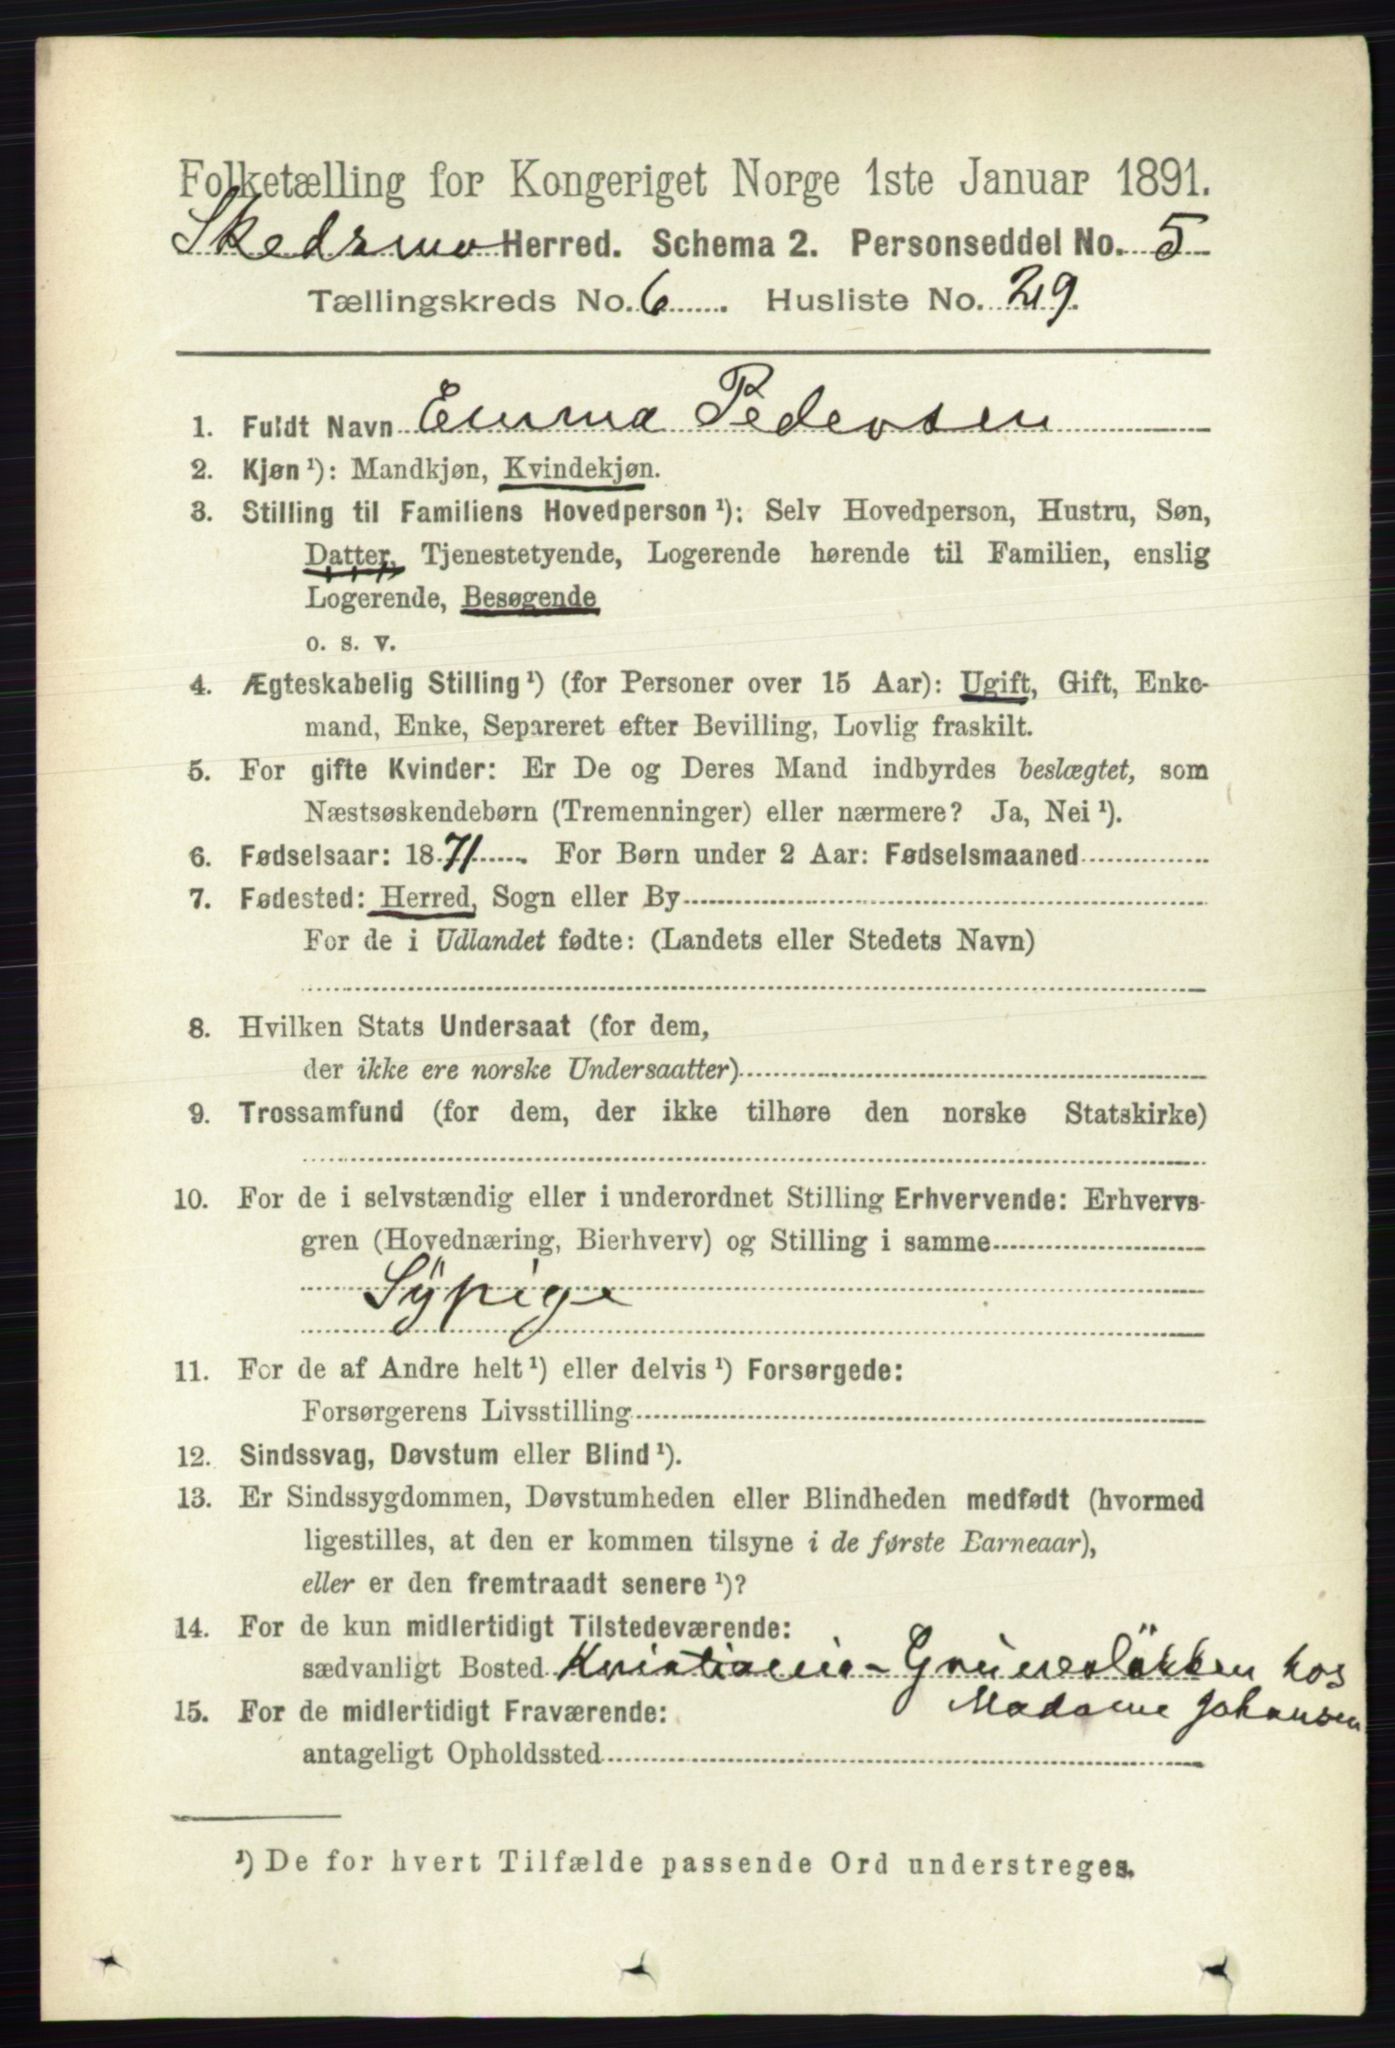 Folketælling for Kongeriget Norge 1ste Januar 1891.
Skedsmo Herred. Schema 2. Personseddel No. 5
Tællingskreds No. 6 Husliste No. 29.
1. Fuldt Navn Emma Pedersen
2. Kjøn ¹): Mandkjøn, Kvindekjøn.
3. Stilling til Familiens Hovedperson ¹): Selv Hovedperson, Hustru, Søn,
Datter, Tjenestetyende, Logerende hørende til Familien, enslig
Logerende, Besøgende
o. s. v.
4. Ægteskabelig Stilling ¹) (for Personer over 15 Aar): Ugift, Gift, Enke-
mand, Enke, Separeret efter Bevilling, Lovlig fraskilt.
5. For gifte Kvinder: Er De og Deres Mand indbyrdes beslægtet, som
Næstsøskendebørn (Tremenninger) eller nærmere? Ja, Nei ¹).
6. Fødselsaar: 1871. For Børn under 2 Aar: Fødselsmaaned
7. Fødested: Herred, Sogn eller By
For de i Udlandet fødte: (Landets eller Stedets Navn)
8. Hvilken Stats Undersaat (for dem,
der ikke ere norske Undersaatter)
9. Trossamfund (for dem, der ikke tilhøre den norske Statskirke)
10. For de i selvstændig eller i underordnet Stilling Erhvervende: Erhvervs-
gren (Hovednæring, Bierhverv) og Stilling i samme
Sÿpige
11. For de af Andre helt ¹) eller delvis ¹) Forsørgede:
Forsørgerens Livsstilling
12. Sindssvag, Døvstum eller Blind ¹).
13. Er Sindssygdommen, Døvstumheden eller Blindheden medfødt (hvormed
ligestilles, at den er kommen tilsyne i de første Barneaar),
eller er den fremtraadt senere ¹)?
14. For de kun midlertidigt Tilstedeværende:
sædvanligt Bosted Kristiania - Grünesløkken hos
Madame Johansen
15. For de midlertidigt Fraværende:
antageligt Opholdssted
¹) De for hvert Tilfælde passende Ord understreges.